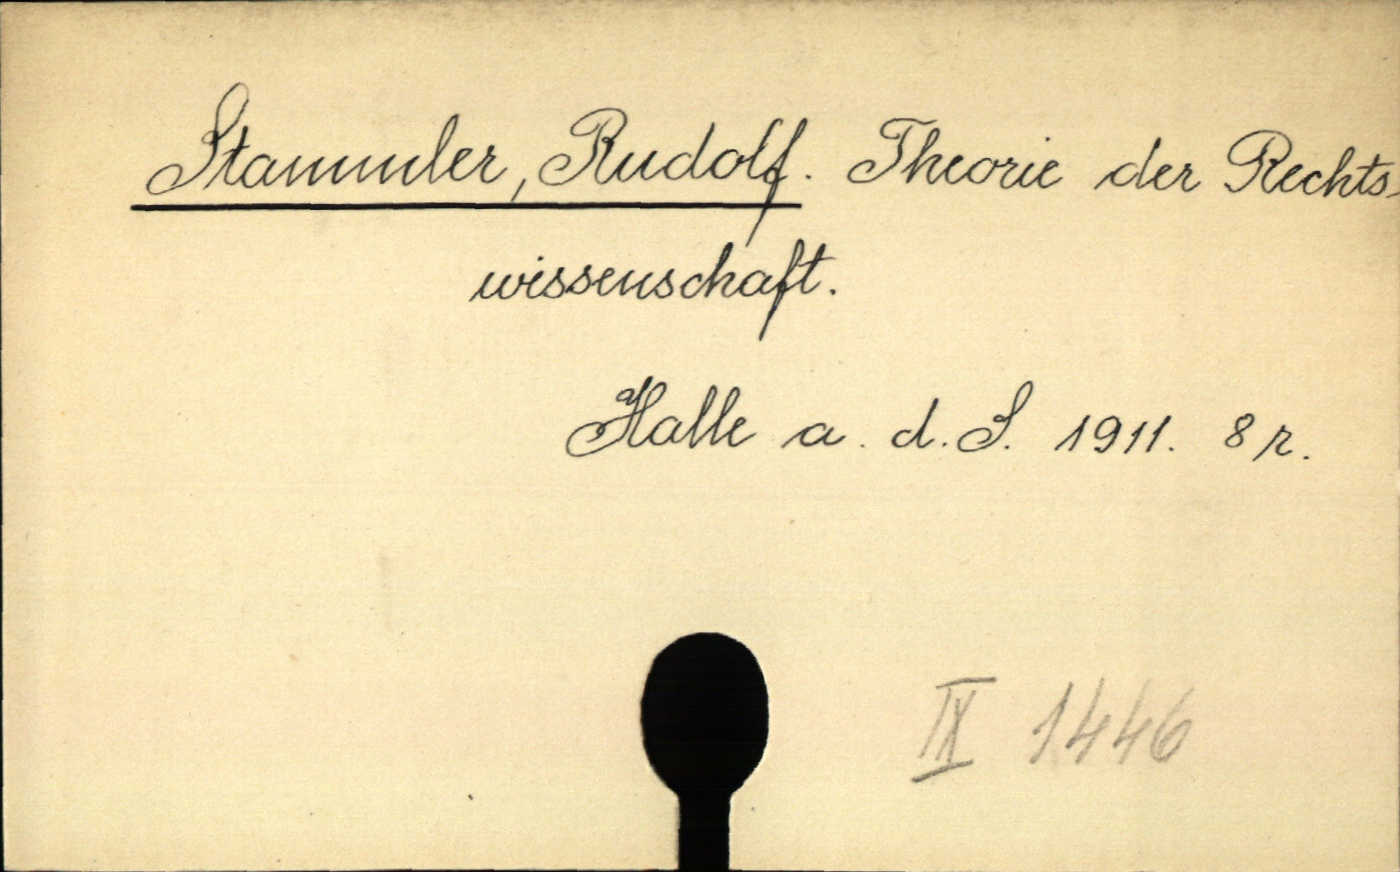 Stammler, Rudolf. Theorie der Rechts-
wissenschaft.
Halle a. d. S. 1911. 8 r.
IX 1446